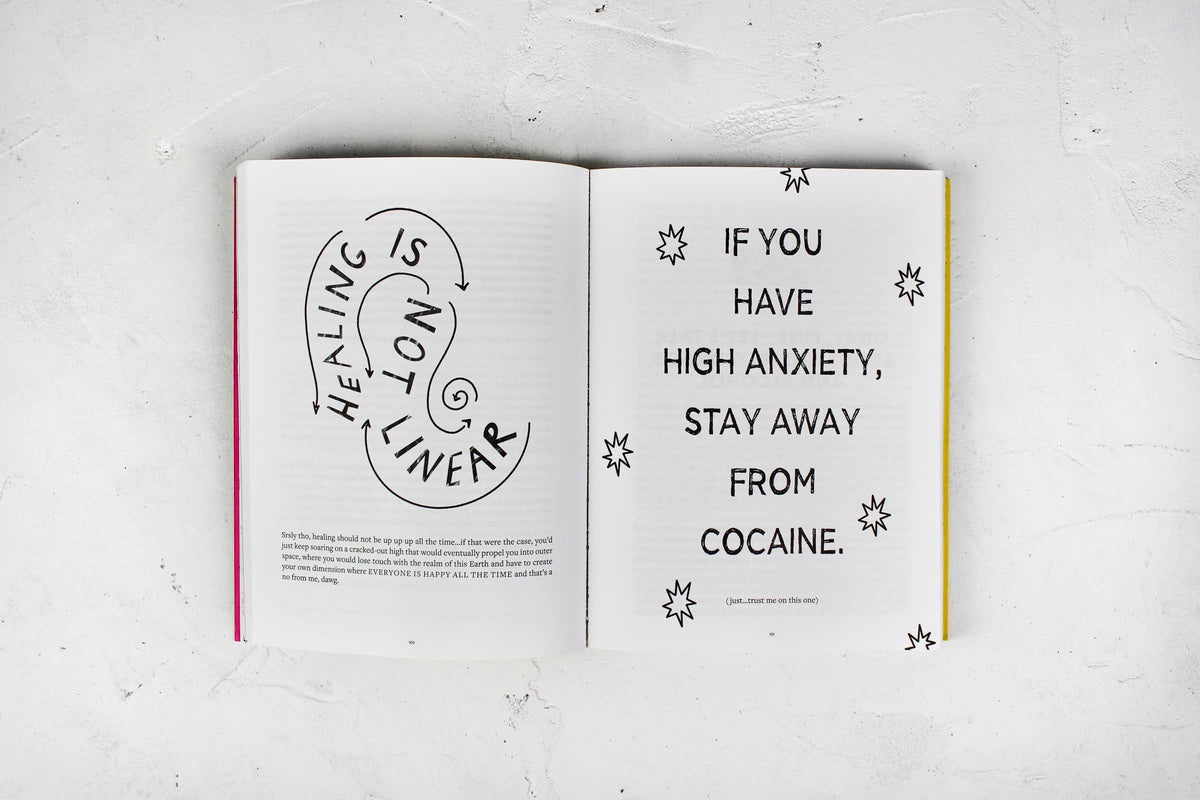 HEALING IS NOT LINEAR
Srsly tho, healing should not be up up up all the time...if that were the case, you'd
just keep soaring on a cracked-out high that would eventually propel you into outer
space, where you would lose touch with the realm of this Earth and have to create
your own dimension where EVERYONE IS HAPPY ALL THE TIME and that's a
no from me, dawg.
100
IF YOU
HAVE
HIGH ANXIETY,
STAY AWAY
FROM
COCAINE.
(just...trust me on this one)
101